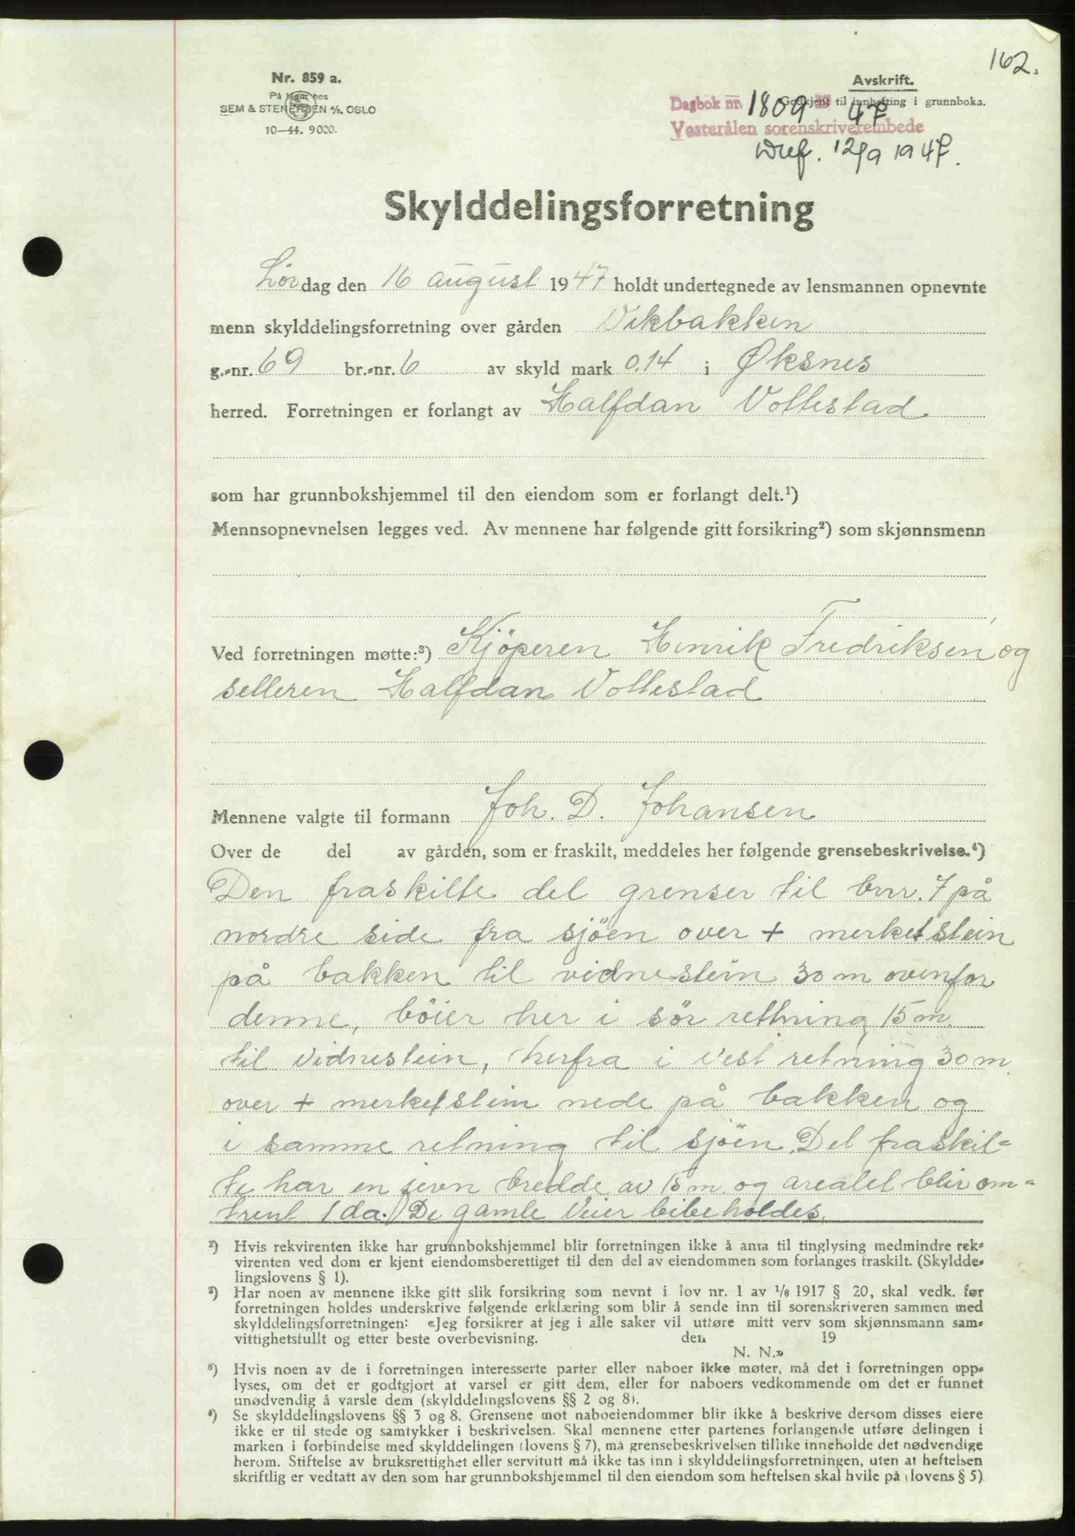 162.
Nr. 859 a.
På lager hos
SEM & STENERSEN A/S. OSLO
10—44. 9000.
Avskrift.
Godkjent til innhefting i grunnboka.
Dagbok nr. 1809 47
Vesterålen sorenskriverembede
12/9 1947.
Skylddelingsforretning
Lørdag den 16 august 1947 holdt undertegnede av lensmannen opnevnte
menn skylddelingsforretning over gården Vikbakken
g.-nr. 69 br.-nr. 6 av skyld mark 0.14 i Øksnes
herred. Forretningen er forlangt av Halfdan Vollestad
som har grunnbokshjemmel til den eiendom som er forlangt delt.¹)
Mennsopnevnelsen legges ved. Av mennene har følgende gitt forsikring²) som skjønnsmenn
Ved forretningen møtte:³) Kjöperen Henrik Fredriksen og
selleren Halfdan Vollestad
Mennene valgte til formann Joh. D. Johansen
Over de del av gården, som er fraskilt, meddeles her følgende grensebeskrivelse.⁴)
Den fraskilte del grenser til bnr. 7 på
nordre side fra sjöen over + merket stein
på bakken til vidnestein 30 m ovenfor
denne, böier her i sör rettning 15 m.
til vidnestein, herfra i vest retning 30 m.
over + merket stein nede på bakken og
i samme retning til sjöen. Del fraskil-
te har en jevn bredde av 15 m. og arealet blir om-
trent 1 da. De gamle veier bibeholdes.
¹) Hvis rekvirenten ikke har grunnbokshjemmel blir forretningen ikke å anta til tinglysing medmindre rek-
virenten ved dom er kjent eiendomsberettiget til den del av eiendommen som forlanges fraskilt. (Skyldde-
lingslovens § 1).
²) Har noen av mennene ikke gitt slik forsikring som nevnt i lov nr. 1 av 1/8 1917 § 20, skal vedk. før
forretningen holdes underskrive følgende erklæring som blir å sende inn til sorenskriveren sammen med
skylddelingsforretningen: «Jeg forsikrer at jeg i alle saker vil utføre mitt verv som skjønnsmann sam-
vittighetsfullt og etter beste overbevisning. den 19
N. N.»
³) Hvis noen av de i forretningen interesserte parter eller naboer ikke møter, må det i forretningen opp-
lyses, om det er godtgjort at varsel er gitt dem, eller for naboers vedkommende om det er funnet
unødvendig å varsle dem (skylddelingslovens §§ 2 og 8).
⁴) Se skylddelingslovens §§ 3 og 8. Grensene mot naboeiendommer blir ikke å beskrive dersom disses eiere
ikke er til stede og samtykker i beskrivelsen. Skal mennene etter partenes forlangende utføre delingen i
marken i forbindelse med skylddelingen (lovens § 7), må grensebeskrivelsen tillike inneholde det nødvendige
herom. Stiftelse av bruksrettighet eller servitutt må ikke tas inn i skylddelingsforretningen, uten at heftelsen
skriftlig er vedtatt av den som har grunnbokshjemmel til den eiendom som heftelsen skal hvile på (lovens § 5)